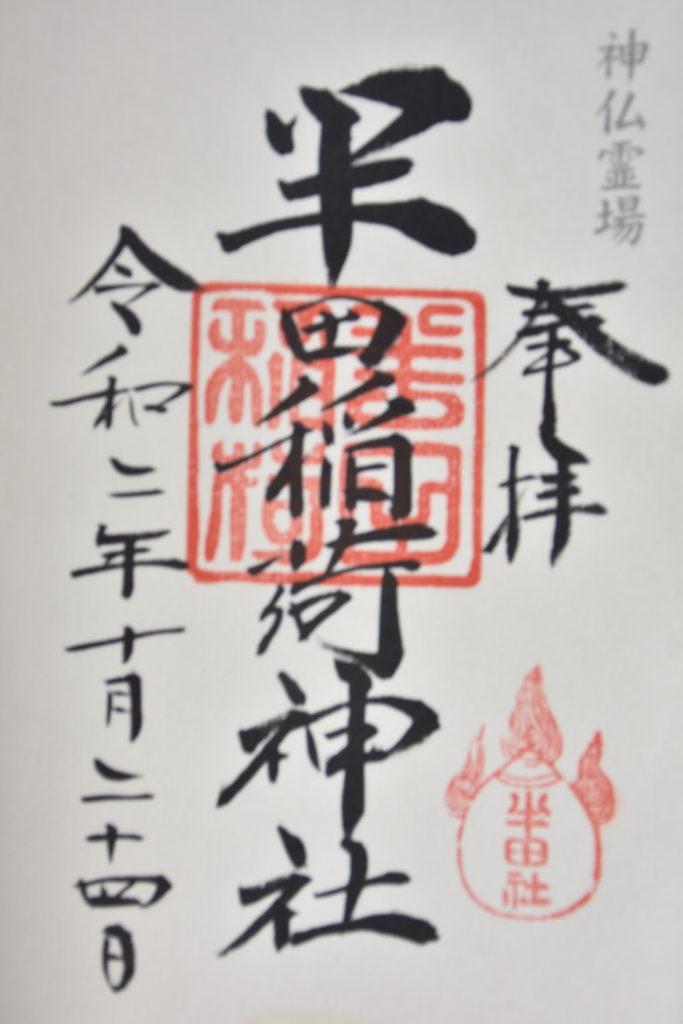 神仏霊場
奉拝
半田稲荷神社
令和二年十月二十四日
半田社